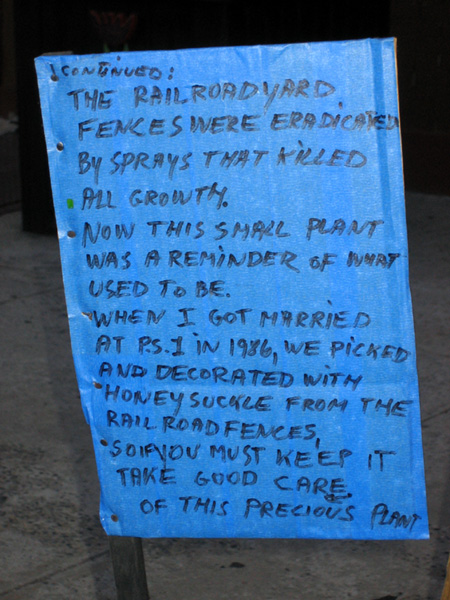 CONTINUED:
THE RAILROADYARD
FENCES WERE ERADICATED
BY SPRAYS THAT KILLED
ALL GROWTH.
NOW THIS SMALL PLANT
WAS A REMINDER OF WHAT
USED TO BE.
WHEN I GOT MARRIED
AT P.S.1 IN 1986, WE PICKED
AND DECORATED WITH
HONEYSUCKLE FROM THE
RAILROADFENCES,
SO IF YOU MUST KEEP IT
TAKE GOOD CARE
OF THIS PRECIOUS PLANT